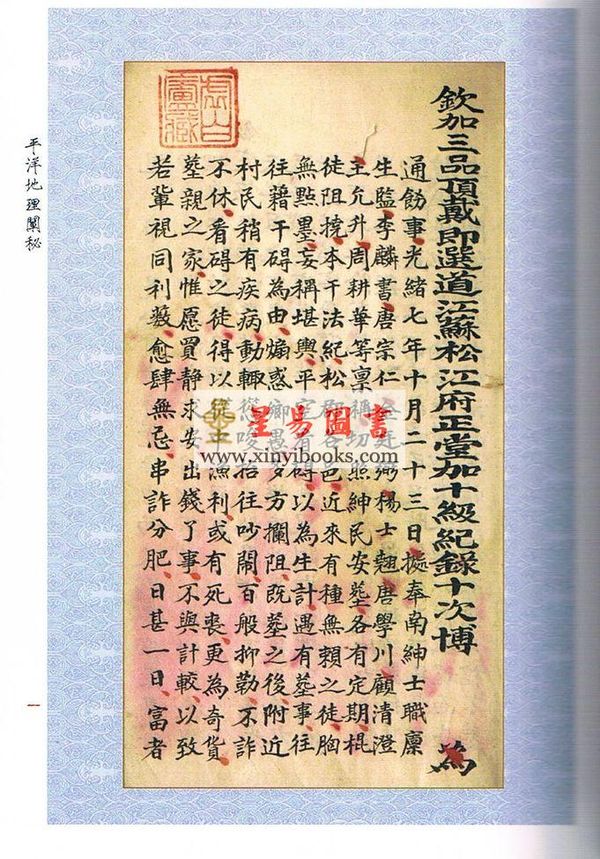 欽加三品頂戴即選道江蘇松江府正堂加十級紀錄十次博 為
通飭事光緒七年十月二十三日據奉南紳士職廩
生監李麟書唐宗仁楊士翹唐學川顧清澄
主允升周耕華等稟稱切照紳民安葬各有定期棍
徒阻撓本干法紀松郡各邑近來有種無賴之徒胸
無點墨妄稱堪輿平碍以為生計遇有葬事往
往藉干碍為由煽惑鄉愚多方攔阻既葬之後附近
村民稍有疾病動輒抬往吵鬧百般抑勒不詐
不休看碍之徒得以漁利或有死喪更為奇貨
葬親之家惟愿買靜求安出錢了事不與計較以致
若輩視同利藪愈肆無忌串詐分肥日甚一日富者
虛白廬藏
平洋地理闡秘
一
呈易圖書
www.xinyibooks.com